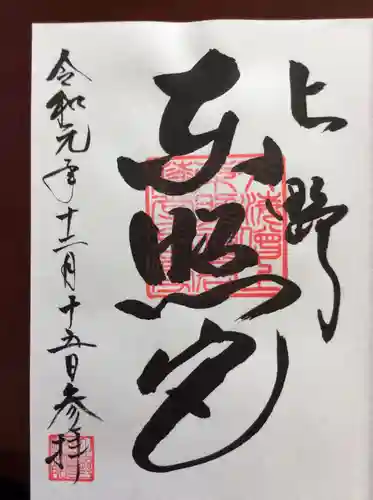 上野
東照宮
令和元年十二月十五日参拝